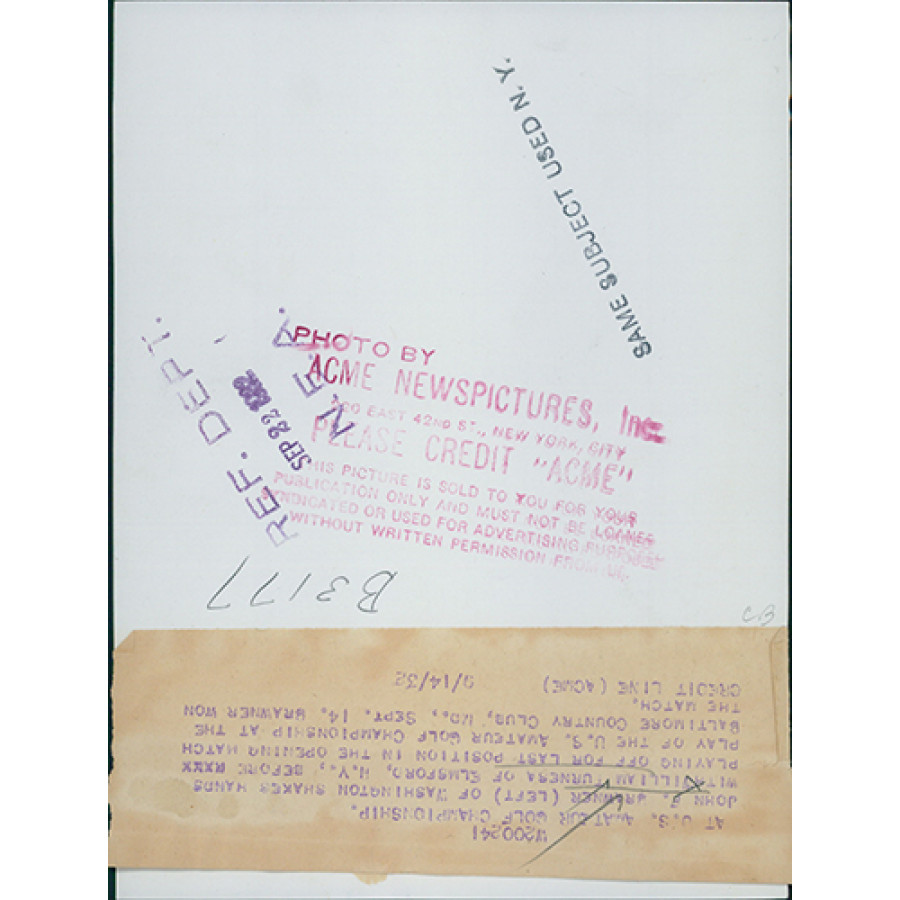 SAME SUBJECT USED N. Y.
REF. DEPT.
N. E. A.
SEP 22 1932
PHOTO BY
ACME NEWSPICTURES, Inc.
220 EAST 42ND ST., NEW YORK, CITY
PLEASE CREDIT "ACME"
THIS PICTURE IS SOLD TO YOU FOR YOUR
PUBLICATION ONLY AND MUST NOT BE LOANED
SYNDICATED OR USED FOR ADVERTISING PURPOSES
WITHOUT WRITTEN PERMISSION FROM US.
B3177
CB
W200241
AT U.S. AMATEUR GOLF CHAMPIONSHIP.
JOHN J. BRAWNER (LEFT) OF WASHINGTON SHAKES HANDS
WITH WILLIAM TURNESA OF ELMSFORD, N.Y., BEFORE XXXX
PLAYING OFF FOR LAST POSITION IN THE OPENING MATCH
PLAY OF THE U.S. AMATEUR GOLF CHAMPIONSHIP AT THE
BALTIMORE COUNTRY CLUB, MD., SEPT. 14. BRAWNER WON
THE MATCH.
CREDIT LINE (ACME) 9/14/32